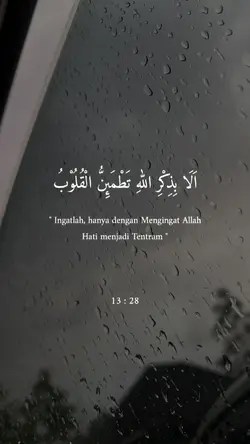 اَلَا بِذِكْرِ اللّٰهِ تَطْمَىِٕنُّ الْقُلُوْبُ
" Ingatlah, hanya dengan Mengingat Allah
Hati menjadi Tentrum "
13 : 28